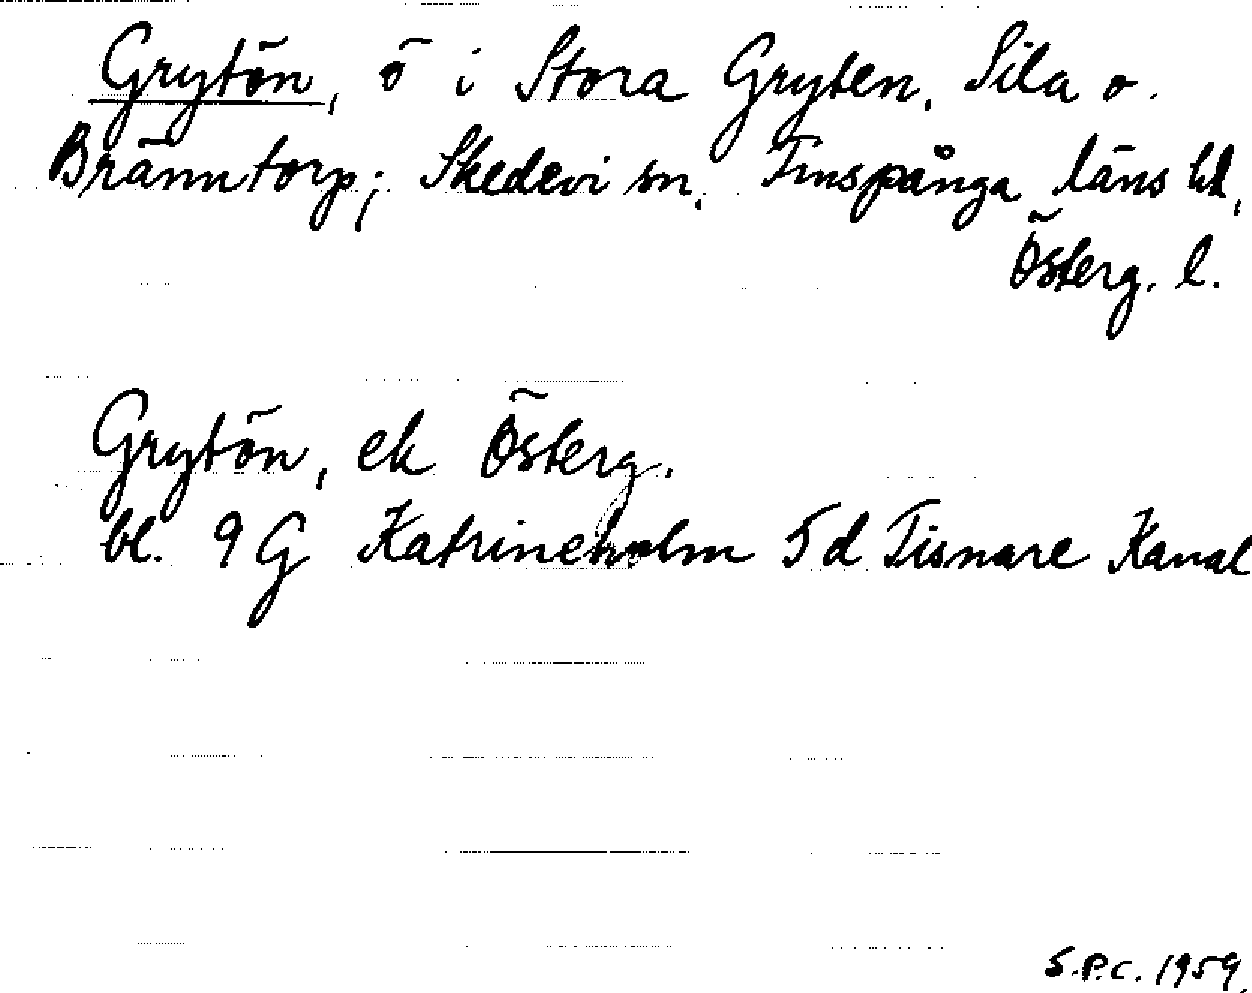 Grytön, ö i Stora Gryten. Sila o.
Bränntorp; Skedevi sn. Finspånga läns hd,
Österg. l.
Grytön, ek Österg.
bl. 9 G Katrineholm 5 d Tisnare Kanal
S.P.C. 1959.